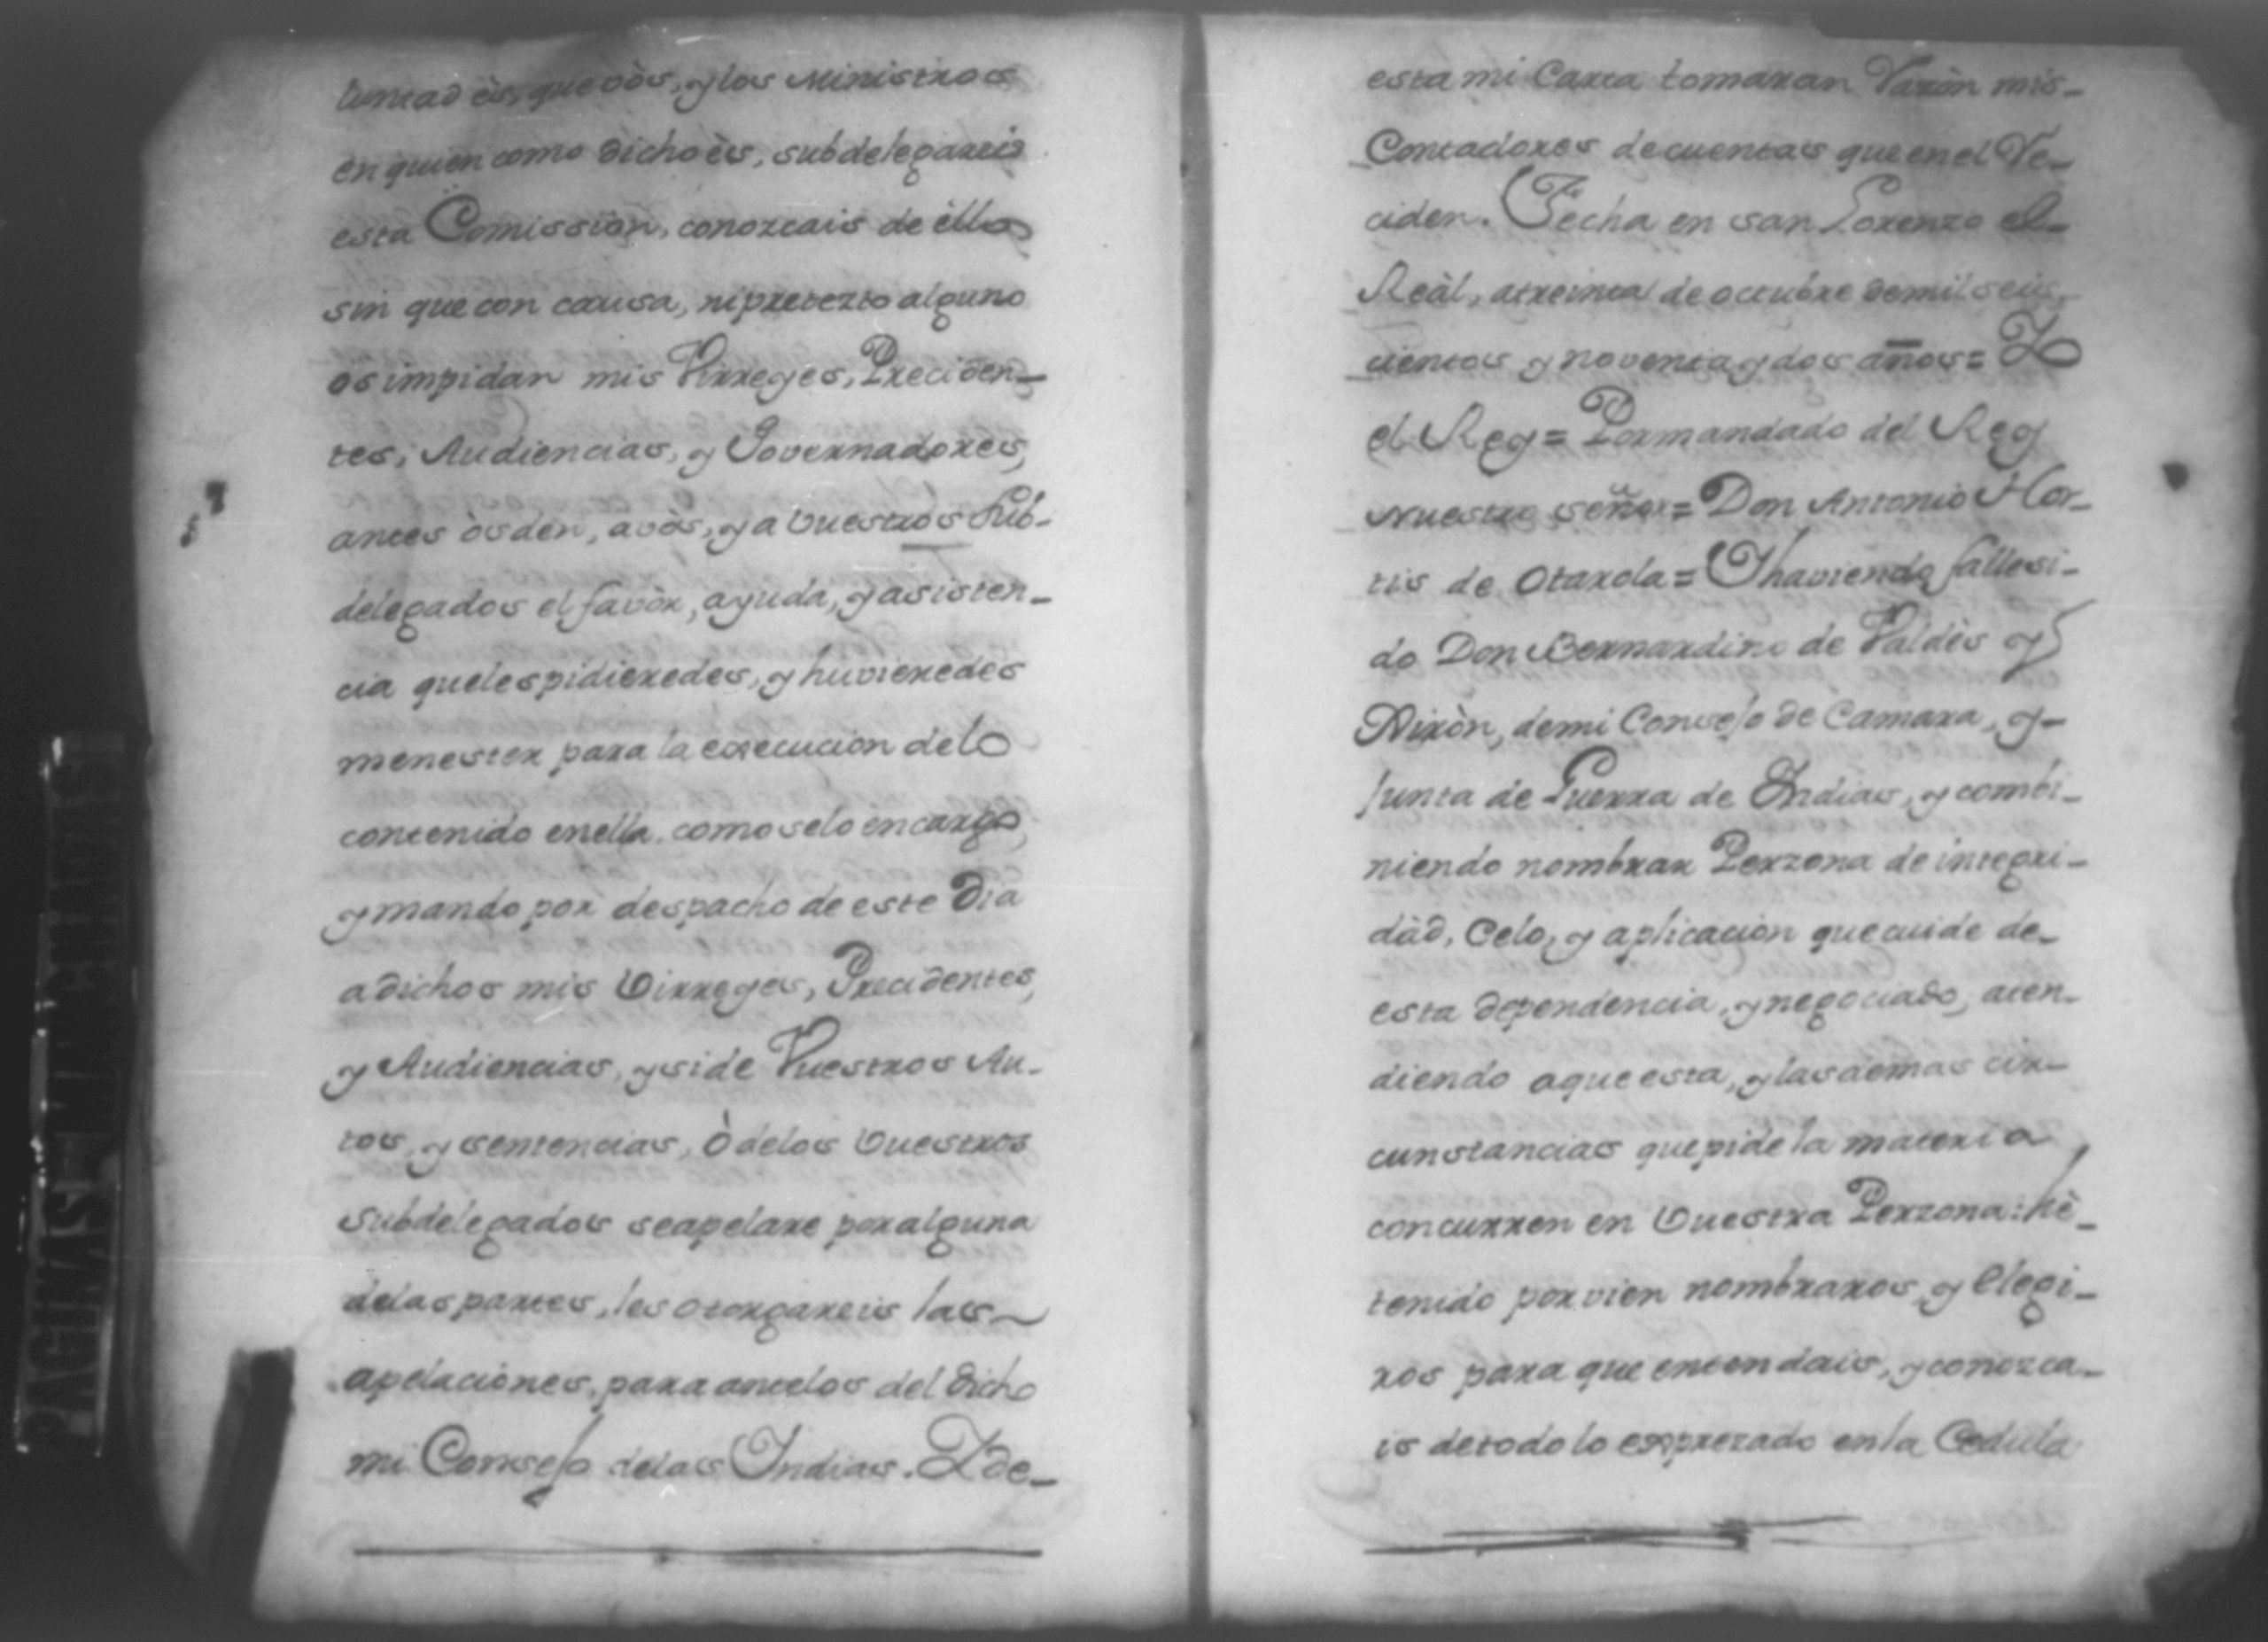 luntad és, que vòs, y los Ministros
en quien como dicho ès, subdelegareis
esta Comission, conozcais de èllo
sin que con causa, ni pretexto alguno
os impidan mis Virreyes, Preciden-
tes, Audiencias, y Governadores,
antes òs den, a vòs, y a vuestros Sub-
delegados el favòr, ayuda, y asisten-
cia que les pidieredes, y huvieredes
menester para la execucion de lo
contenido en ella. como se lo encargo,
y mando por despacho de este Dia
a dichos mis Virreyes, Precidentes,
y Audiencias, y si de Vuestros Au-
tos, y sentencias, ò de los vuestros
subdelegados se apelare por alguna
de las partes, les otorgareis las
apelaciones, para ante los del dicho
mi Consejo de las Indias. Y de-
esta mi Carta tomaran Razòn mis-
Contadores de cuentas que en el Re-
ciden. Fecha en san Lorenzo el-
Reàl, a treinta de octubre de mil seis-
cientos y noventa y dos años = Yo
el Rey = Por mandado del Rey
nuestro señor = Don Antonio Hor-
tis de Otarola = Y haviendo fallesi-
do Don Bernardino de Valdès y
Xiròn, de mi Consejo de Camara, y-
Junta de Guerra de Indias, y combi-
niendo nombrar Perzona de integri-
dàd, Celo, y aplicacion que cuide de-
esta dependencia, y negociado, aten-
diendo a que esta, y las demas cir-
cunstancias que pide la materia,
concurren en Vuestra Perzona: hè-
tenido por vien nombraros, y elegi-
ros para que entendais, y conozca-
is de todo lo exprezado en la Cedula
PAGINAS